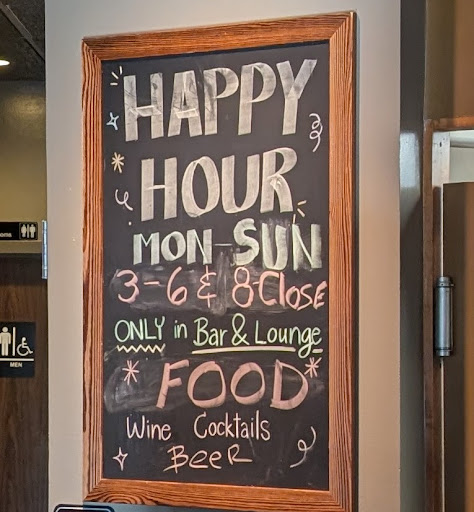 HAPPY
HOUR
MON-SUN
3-6 & 8-Close
ONLY in Bar & Lounge
FOOD
Wine Cocktails
Beer
MEN